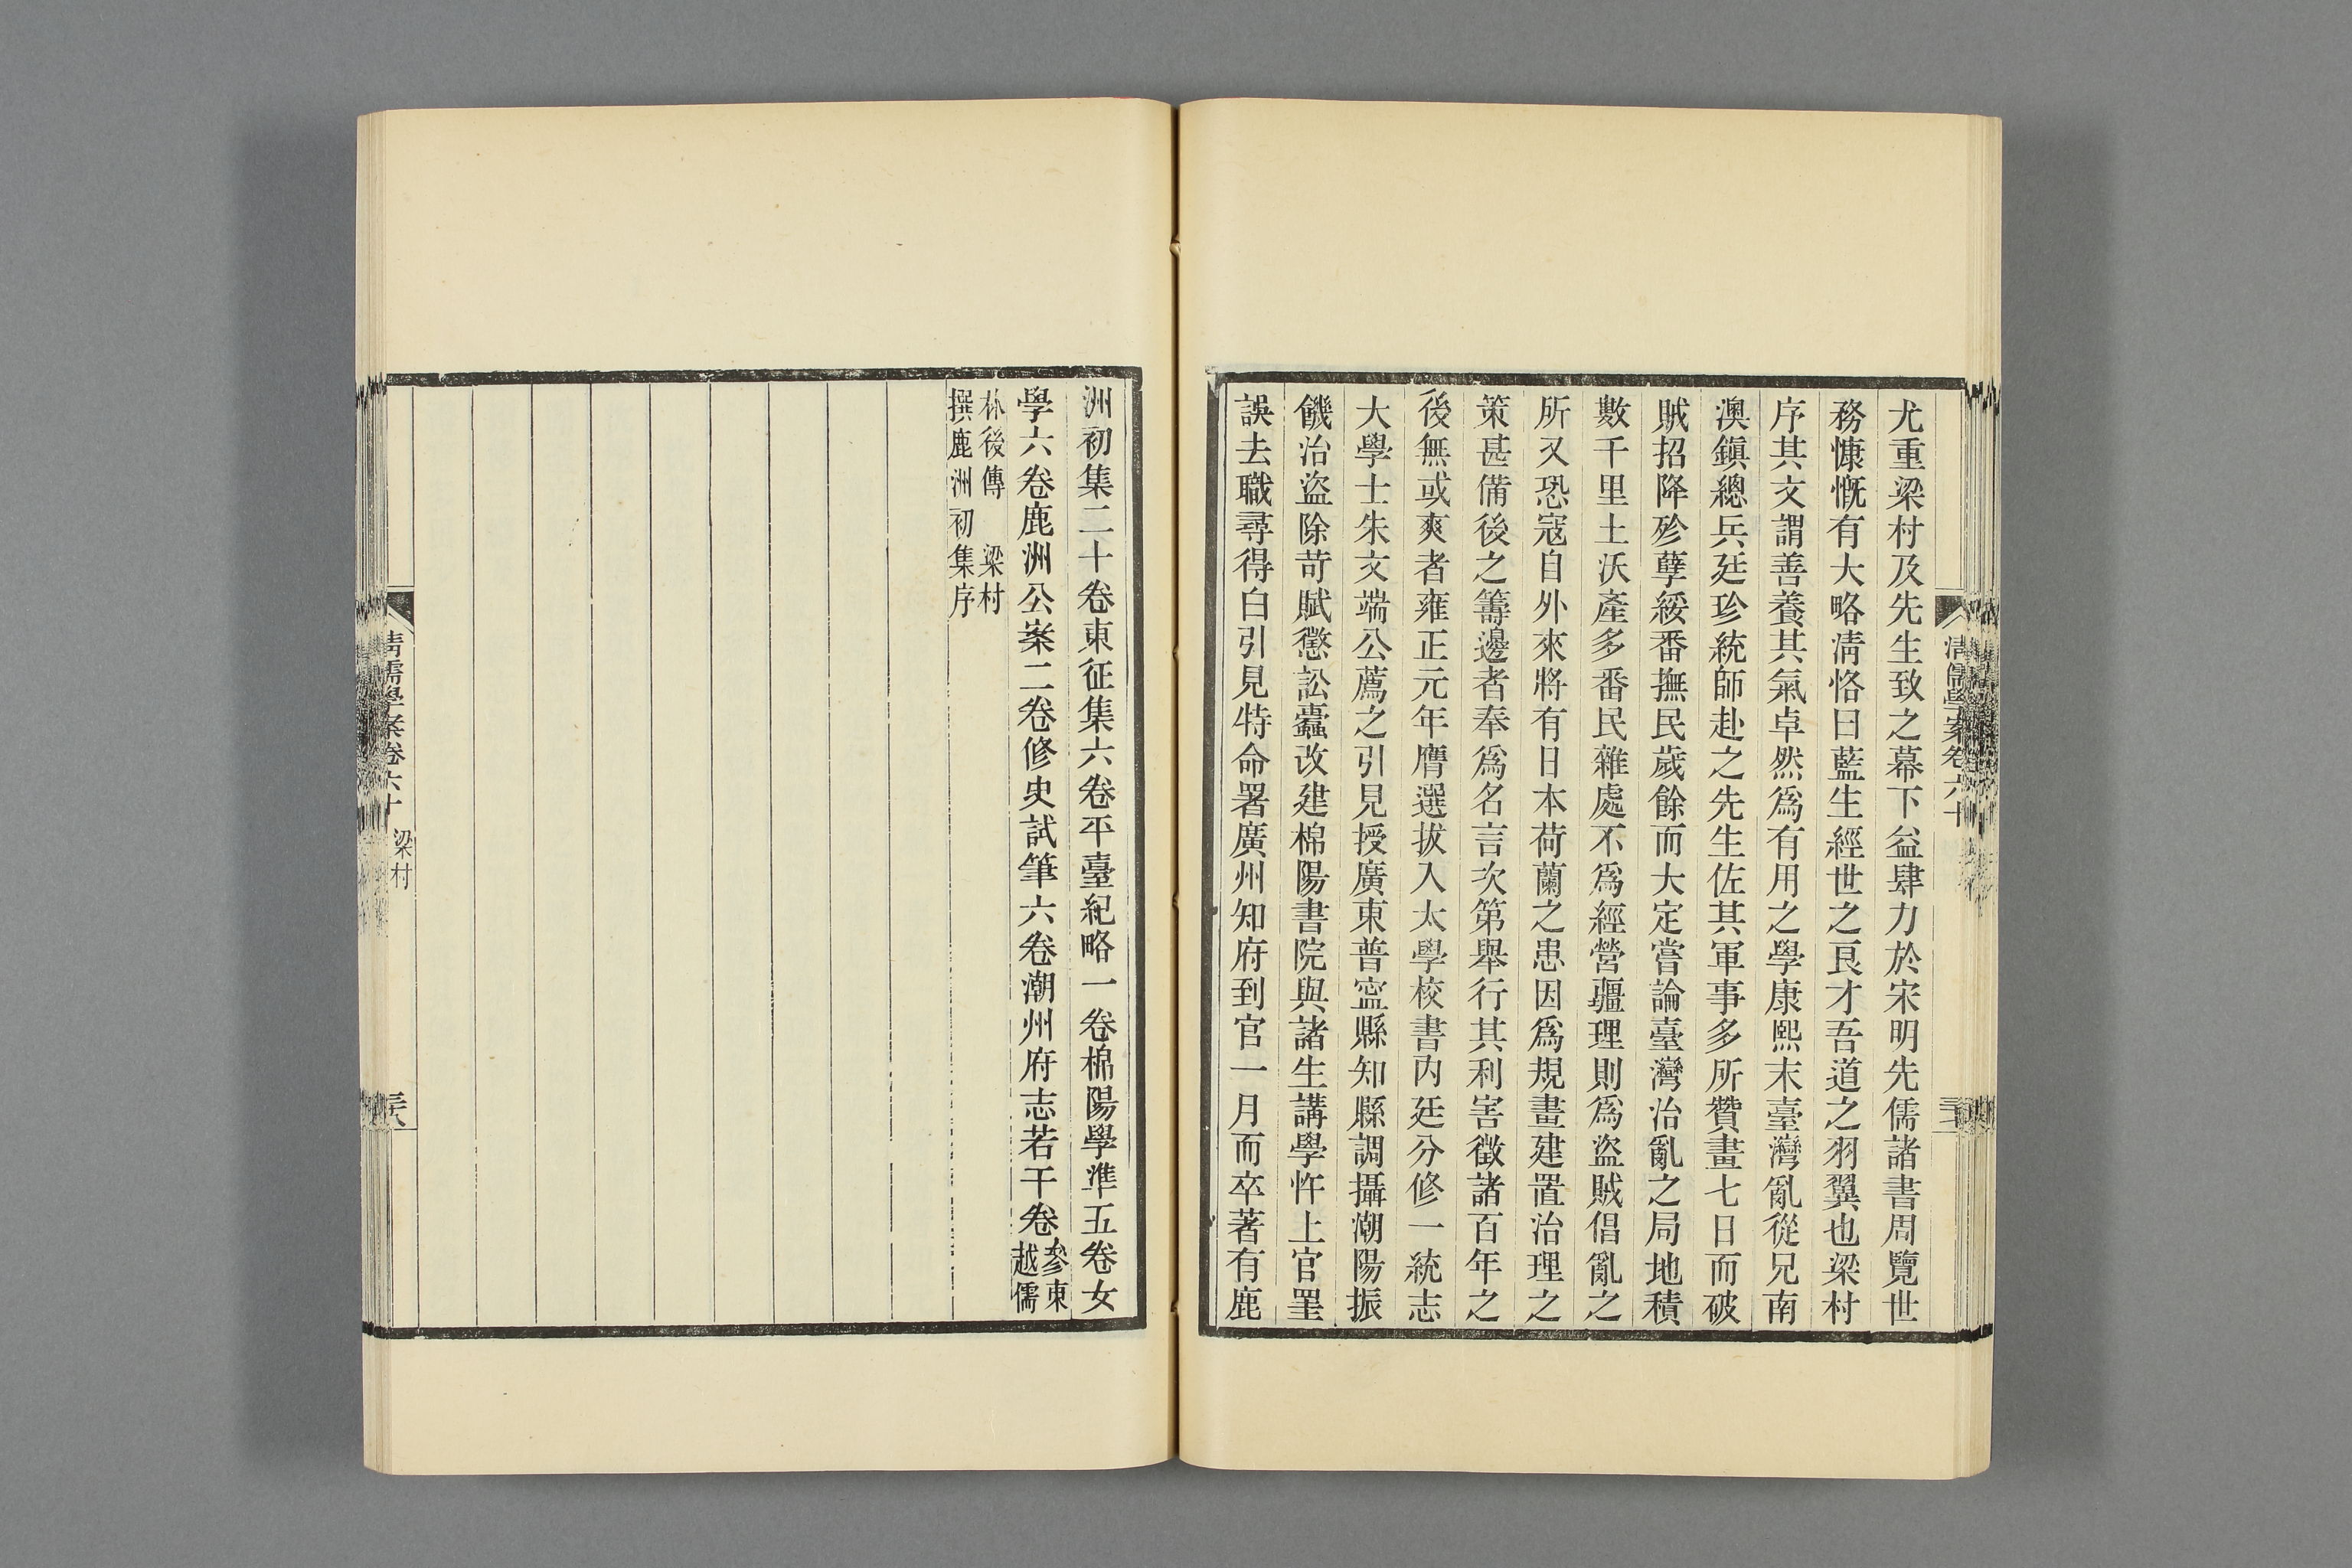 清儒學案卷六十
尤重梁村及先生致之幕下益肆力於宋明先儒諸書周覽世
務慷慨有大略淸恪曰藍生經世之良才吾道之羽翼也梁村
序其文謂善養其氣卓然爲有用之學康熙末臺灣亂從兄南
澳鎭總兵廷珍統師赴之先生佐其軍事多所贊畫七日而破
賊招降殄孽綏番撫民歲餘而大定嘗論臺灣治亂之局地積
數千里土沃產多番民雜處不爲經營疆理則爲盜賊倡亂之
所又恐寇自外來將有日本荷蘭之患因爲規畫建置治理之
策甚備後之籌邊者奉爲名言次第舉行其利害徵諸百年之
後無或爽者雍正元年膺選拔入太學校書內廷分修一統志
大學士朱文端公薦之引見授廣東普寍縣知縣調攝潮陽振
饑治盜除苛賦懲訟蠹改建棉陽書院與諸生講學忤上官罣
誤去職尋得白引見特命署廣州知府到官一月而卒著有鹿
洲初集二十卷東征集六卷平臺紀略一卷棉陽學準五卷女
學六卷鹿洲公案二卷修史試筆六卷潮州府志若干卷參東
越儒
林後傳 梁村
撰鹿洲初集序
清儒學案卷六十 梁村 三六